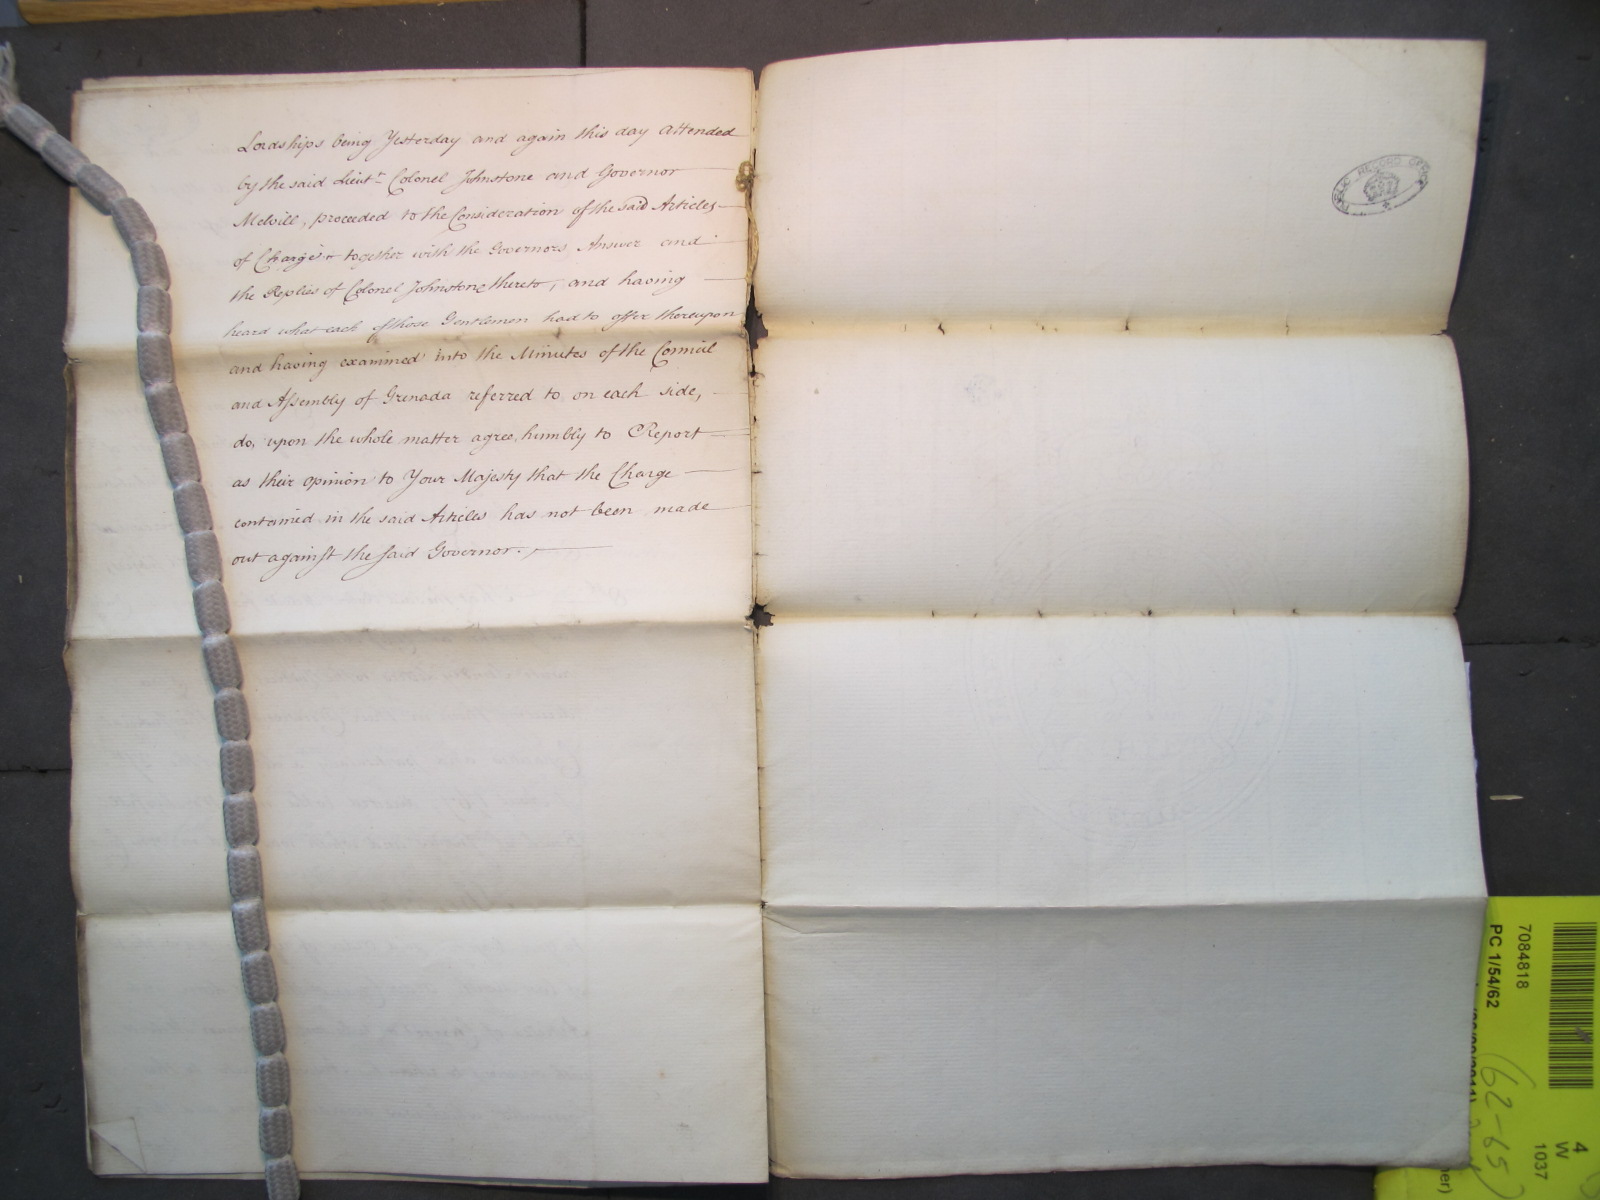 Lordships being Yesterday and again this day attended
by the said Lieut.t Colonel Johnstone and Governor
Melvill, proceeded to the Consideration of the said Articles
of Charge together with the Governors Answer and
the Replies of Colonel Johnstone thereto, and having
heard what each of those Gentlemen had to offer thereupon
and having examined into the Minutes of the Council
and Assembly of Grenada referred to on each side,
do, upon the whole matter agree, humbly to Report
as their opinion to Your Majesty that the Charge
contained in the said Articles has not been made
out against the said Governor.
PUBLIC RECORD OFFICE
7084818
PC 1/54/62
4
W
1037
(62-65)